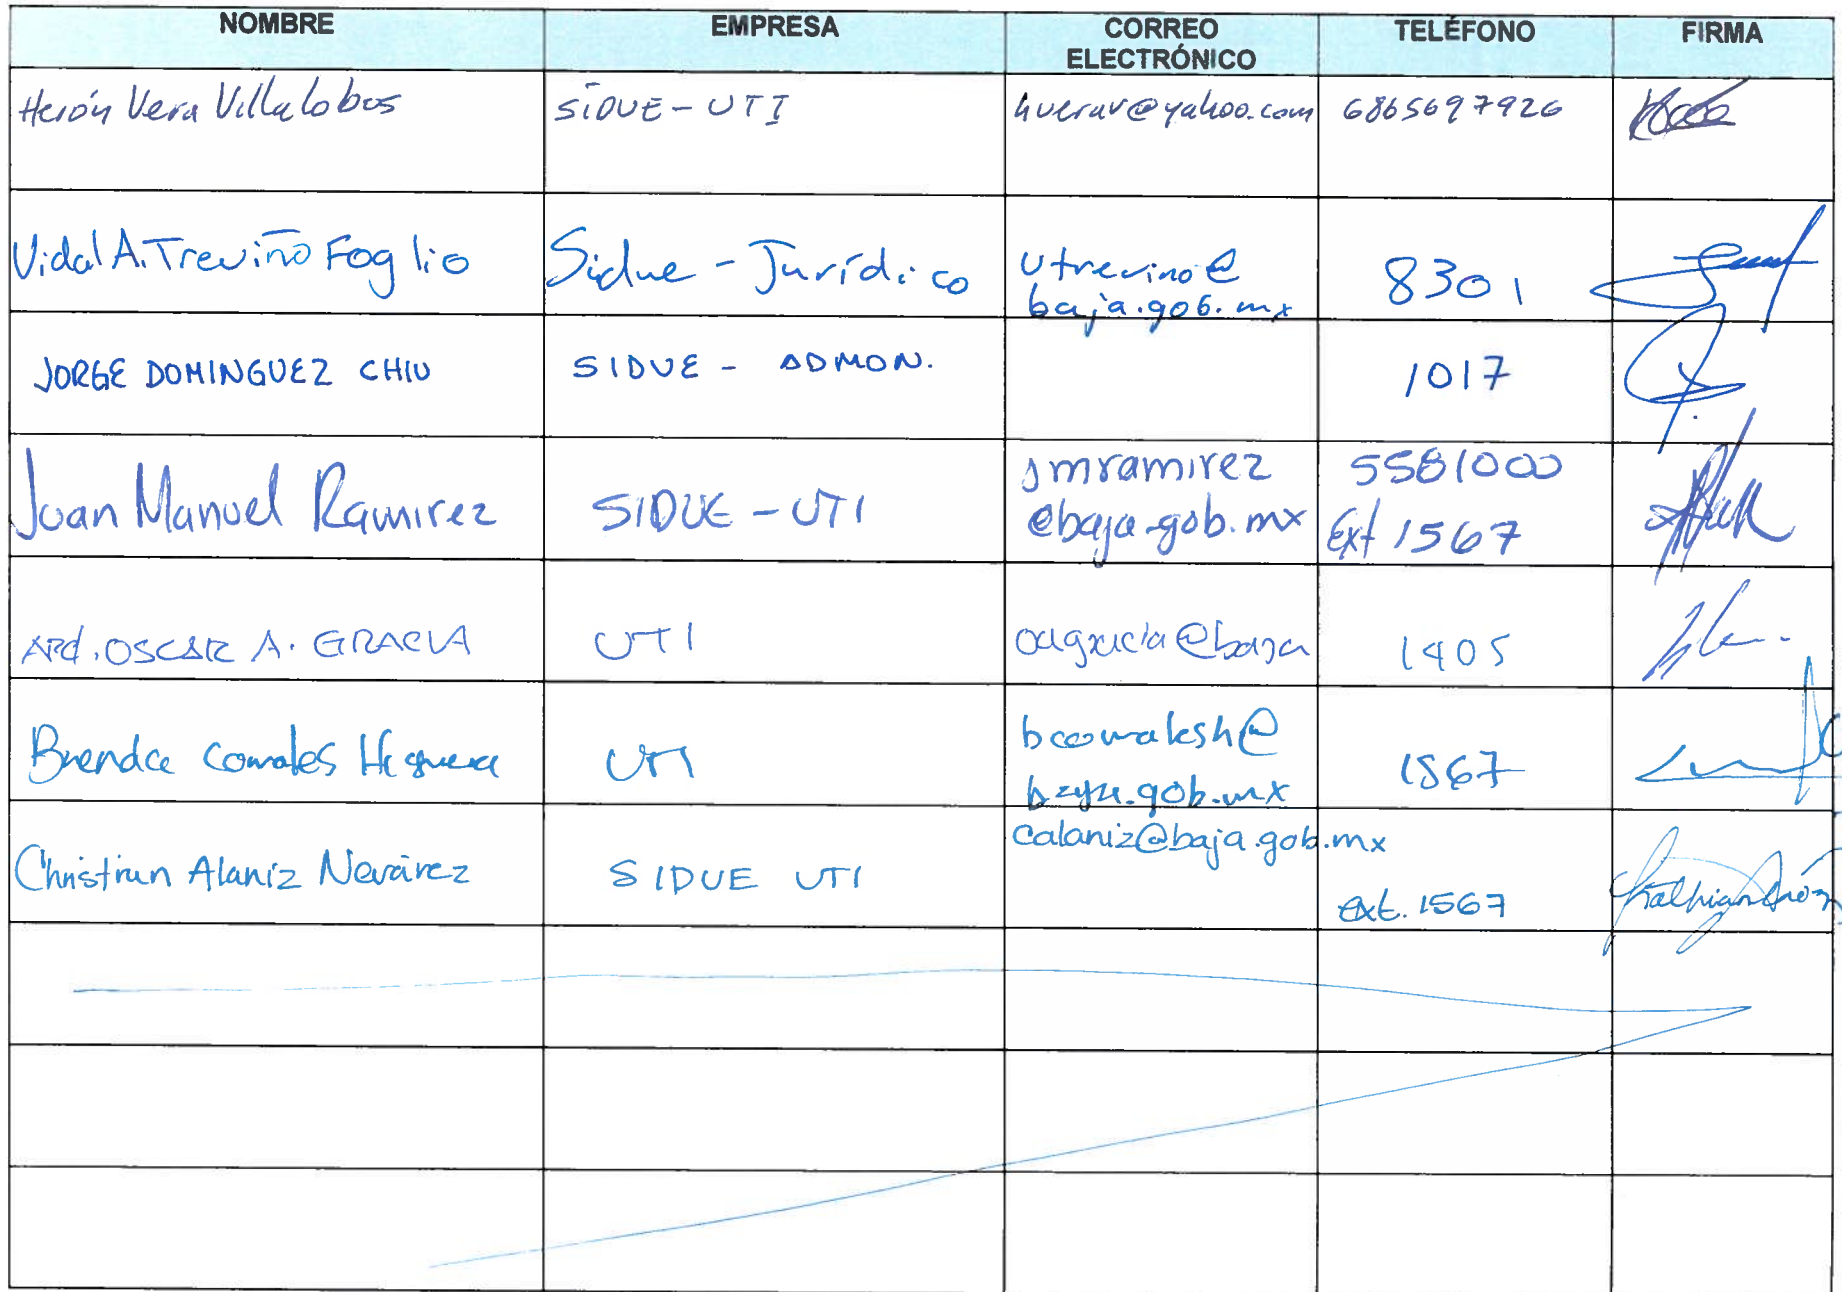 NOMBRE EMPRESA CORREO ELECTRÓNICO TELÉFONO FIRMA
Herón Vera Villalobos SIDUE-UTI hverav@yahoo.com 6865697926
Vidal A. Treviño Foglio Sidue - Jurídico vtrevino@
baja.gob.mx 8301
JORGE DOMINGUEZ CHIU SIDUE - ADMON. 1017
Juan Manuel Ramirez SIDUE - UTI jmramirez
@baja.gob.mx 5581000
Ext 1567
OSCAR A. GRACIA UTI oagracia@baja 1405
Brenda UTI
baja.gob.mx 1567
Christian Alaniz Nevárez SIDUE UTI calaniz@baja.gob.mx
ext. 1567